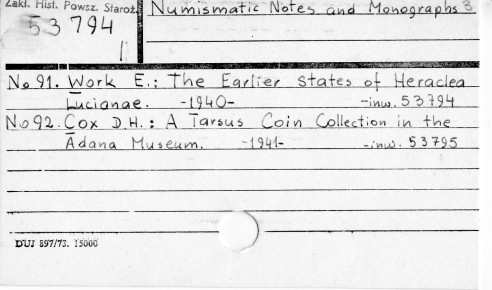 Zakł. Hist. Powsz. Staroż.
53 794
Numismatic Notes and Monographs 3
No 91. Work E.: The Earlier States of Heraclea
Lucianae. -1940- -inw. 53794
No 92. Cox D.H.: A Tarsus Coin Collection in the
Adana Museum. -1941- -inw. 53795
DUJ 897/73. 15000